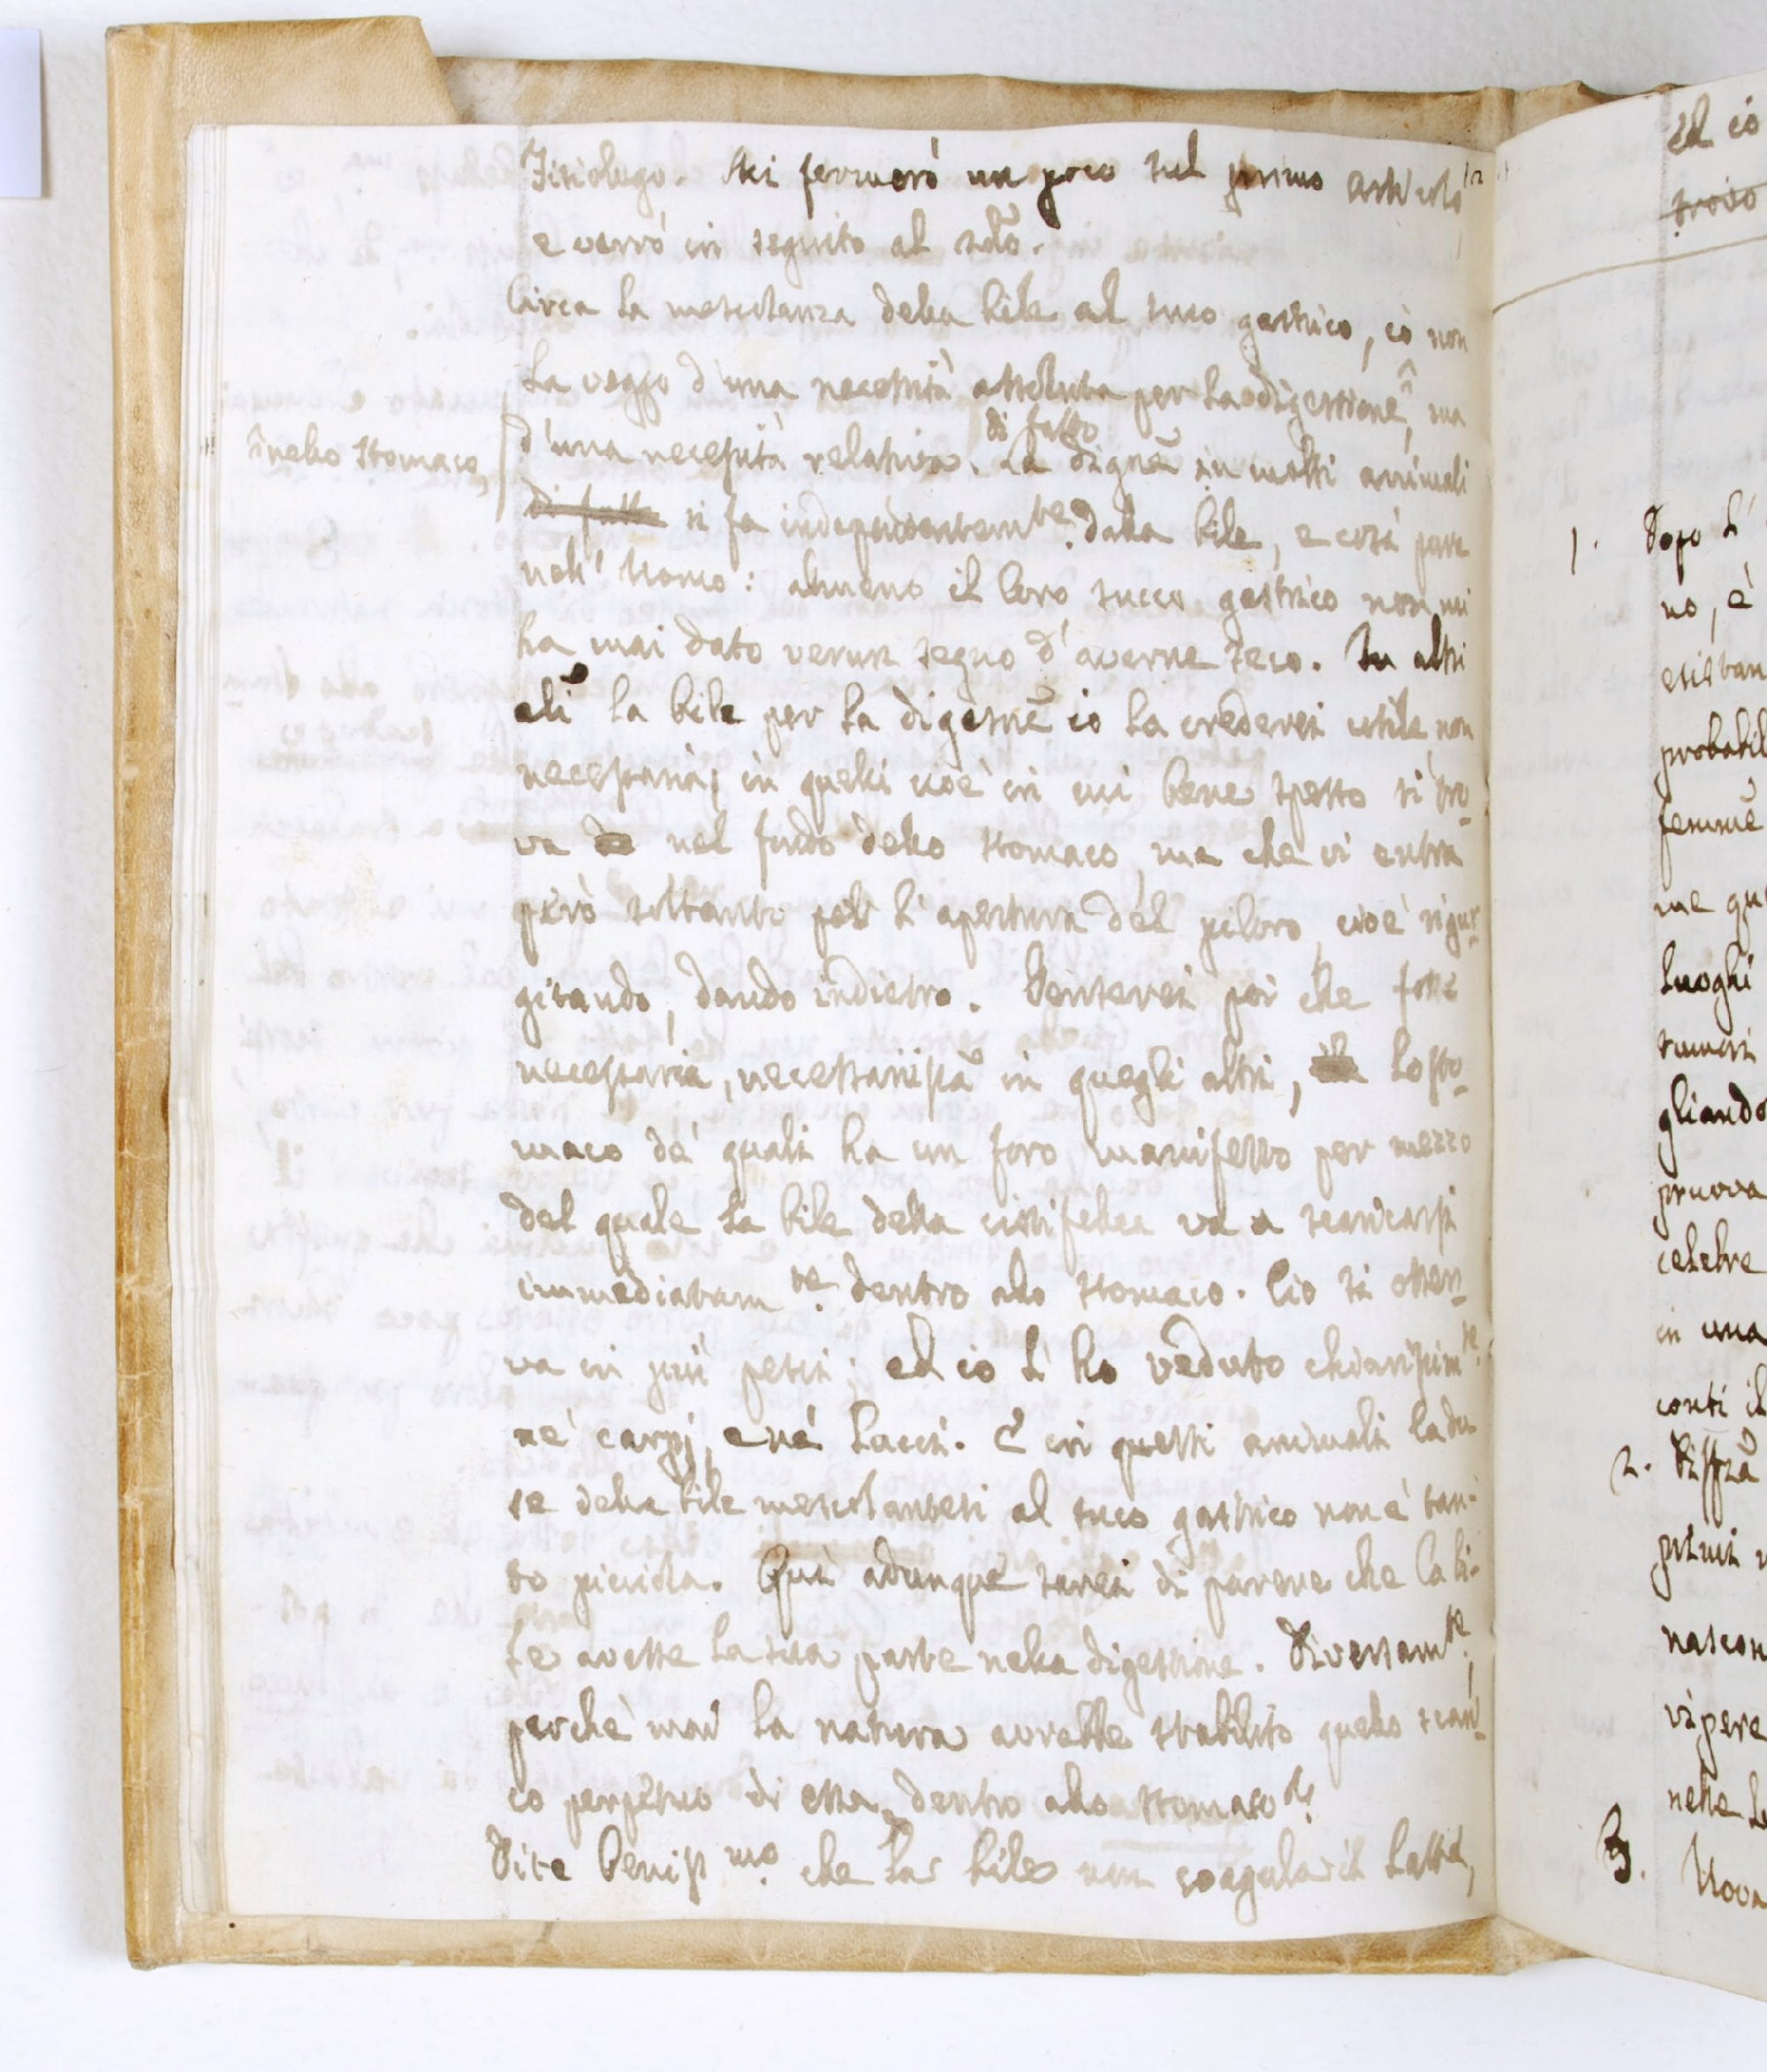 Fisiologo. Mi fermerò un poco sul primo articolo
e verrò in seguito al sdo.
Circa la mescolanza della bile al suco gastrico, io non
la veggo d'una necessità assoluta per la digestione^, ma
^nello stomaco,
d'una necessità relativa. di fatto La digne in molti animali
di fatto si fa independentemte. dalla bile, e così pare
nell' Uomo: almeno il loro succo gastrico non mi
ha mai dato verun segno d'averne seco. In altri
ali la bile per la digestne io la crederei utile, non
necessaria; in quelli cioè in cui bene spesso si tro-
va nel fondo dello stomaco, ma che vi entra
però soltanto per l'apertura del piloro, cioè rigur-
gitando, dando indietro. Penserei poi che fosse
necessaria, necessarissa in quegli altri, lo sto-
maco de' quali ha un foro manifesto per mezzo
del quale la bile della cistifellea va a scaricarsi
immediatamte. dentro allo stomaco. Ciò si osser-
va in più pesci; ed io l'ho veduto chiarissimte.
ne' carpj, e ne' lucci. E in questi animali la do
se della bile mescolantesi al suco gastrico non è tan-
to picciola. Quì adunque sarei di parere che la bi-
le avesse la sua parte nella digestione. Diversamte.
perchè mai la natura avrebbe stabilito quello scari-
co perpetuo di essa dentro allo stomaco?
Dite benissmo. che la bile non coagula il latte,
ed io
trovo
1. Dopo l'
no, è
probabil
me qu
luoghi
gliando
pruova
celebre
in una
conti il
2.
nascon
vipere
nelle
3. Uova